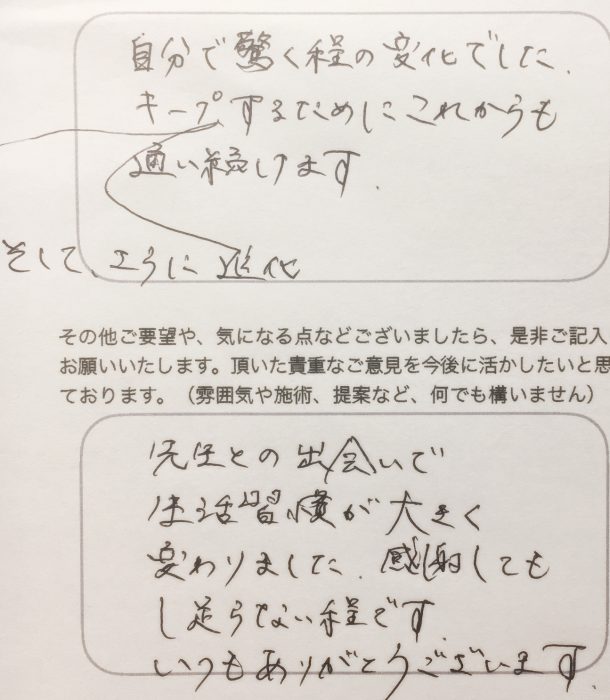 自分で驚く程の変化でした.
キープするためにこれからも
通い続けます.
そして、さらに進化
その他ご要望や、気になる点などございましたら、是非ご記入
お願いいたします。頂いた貴重なご意見を今後に活かしたいと思
ております。（雰囲気や施術、提案など、何でも構いません）
先生との出会いで
生活習慣が大きく
変わりました. 感謝しても
し足らない程です
いつもありがとうございます.